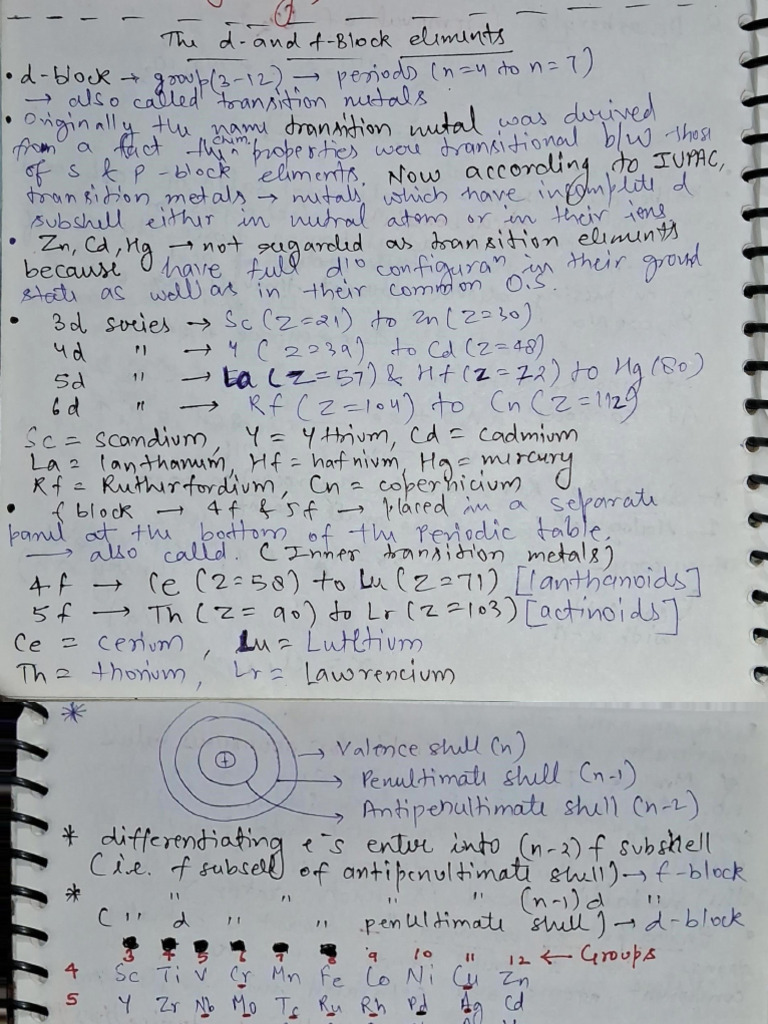 The d-and f-Block elements
• d-block → group(3-12) → periods (n=4 to n=7)
→ also called transition metals
• Originally the name transition metal was derived
from a fact their chem. properties were transitional b/w those
of s & p -block elements. Now according to IUPAC,
transition metals → metals which have incomplete d
subshell either in nutral atom or in their ions.
• Zn, Cd, Hg → not regarded as transition elements
because have full d¹⁰ configuraⁿ in their ground
state as well as in their common O.S.
• 3d series → Sc (Z=21) to Zn (Z=30)
4d " → Y (Z=39) to Cd (Z=48)
5d " → La (Z=57) & Hf (Z=72) to Hg (80)
6d " → Rf (Z=104) to Cn (Z=112)
Sc = scandium, Y = Yttrium, Cd = cadmium
La = lanthanum, Hf = hafnium, Hg = mercury
Rf = Rutherfordium, Cn = copernicium
• f block → 4f & 5f → placed in a separate
panel at the bottom of the Periodic table.
→ also called (Inner transition metals)
4f → Ce (Z=58) to Lu (Z=71) [lanthanoids]
5f → Th (Z=90) to Lr (Z=103) [actinoids]
Ce = cerium, Lu = Lutetium
Th = thorium, Lr = Lawrencium
* + → Valence shell (n)
→ Penultimate shell (n-1)
→ Antipenultimate shell (n-2)
* differentiating e⁻s enter into (n-2) f subshell
(i.e. f subsell of antipenultimate shell) → f-block
* " " " " (n-1)d "
( " d " " penultimate shell) → d-block
3 4 5 6 7 8 9 10 11 12 ← Groups
4 Sc Ti V Cr Mn Fe Co Ni Cu Zn
5 Y Zr Nb Mo Tc Ru Rh Pd Ag Cd